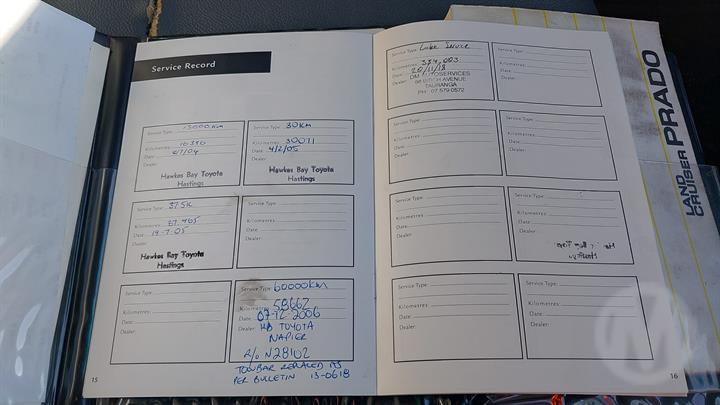 Service Record
Service Type: 15000 Km
Kilometres:
Date: 6/7/04
Dealer:
Hawkes Bay Toyota
Hastings
Service Type: 30KM
Kilometres: 30011
Date: 4/2/05
Dealer:
Hawkes Bay Toyota
Hastings
Service Type: 37.5K
Kilometres: 37.465
Date: 19-7-05
Dealer:
Hawkes Bay Toyota
Hastings
Service Type:
Kilometres:
Date:
Dealer:
Service Type:
Kilometres:
Date:
Dealer:
Service Type: 60000KM
Kilometres: 58662
Date: 07-12-2006
Dealer: HB TOYOTA
NAPIER
R/o N28102
TOWBAR REPLACED ITS
PER BULLETIN 13-0618
15
Service Type: Lube Service
Kilometres:
Date: 20/11/18
Dealer:
DM AUTOSERVICES
98 BIRCH AVENUE
TAURANGA
PH: 07 579 0572
Service Type:
Kilometres:
Date:
Dealer:
Service Type:
Kilometres:
Date:
Dealer:
Service Type:
Kilometres:
Date:
Dealer:
Service Type:
Kilometres:
Date:
Dealer:
Service Type:
Kilometres:
Date:
Dealer:
Service Type:
Kilometres:
Date:
Dealer:
Service Type:
Kilometres:
Date:
Dealer:
16
LAND
CRUISER PRADO
M